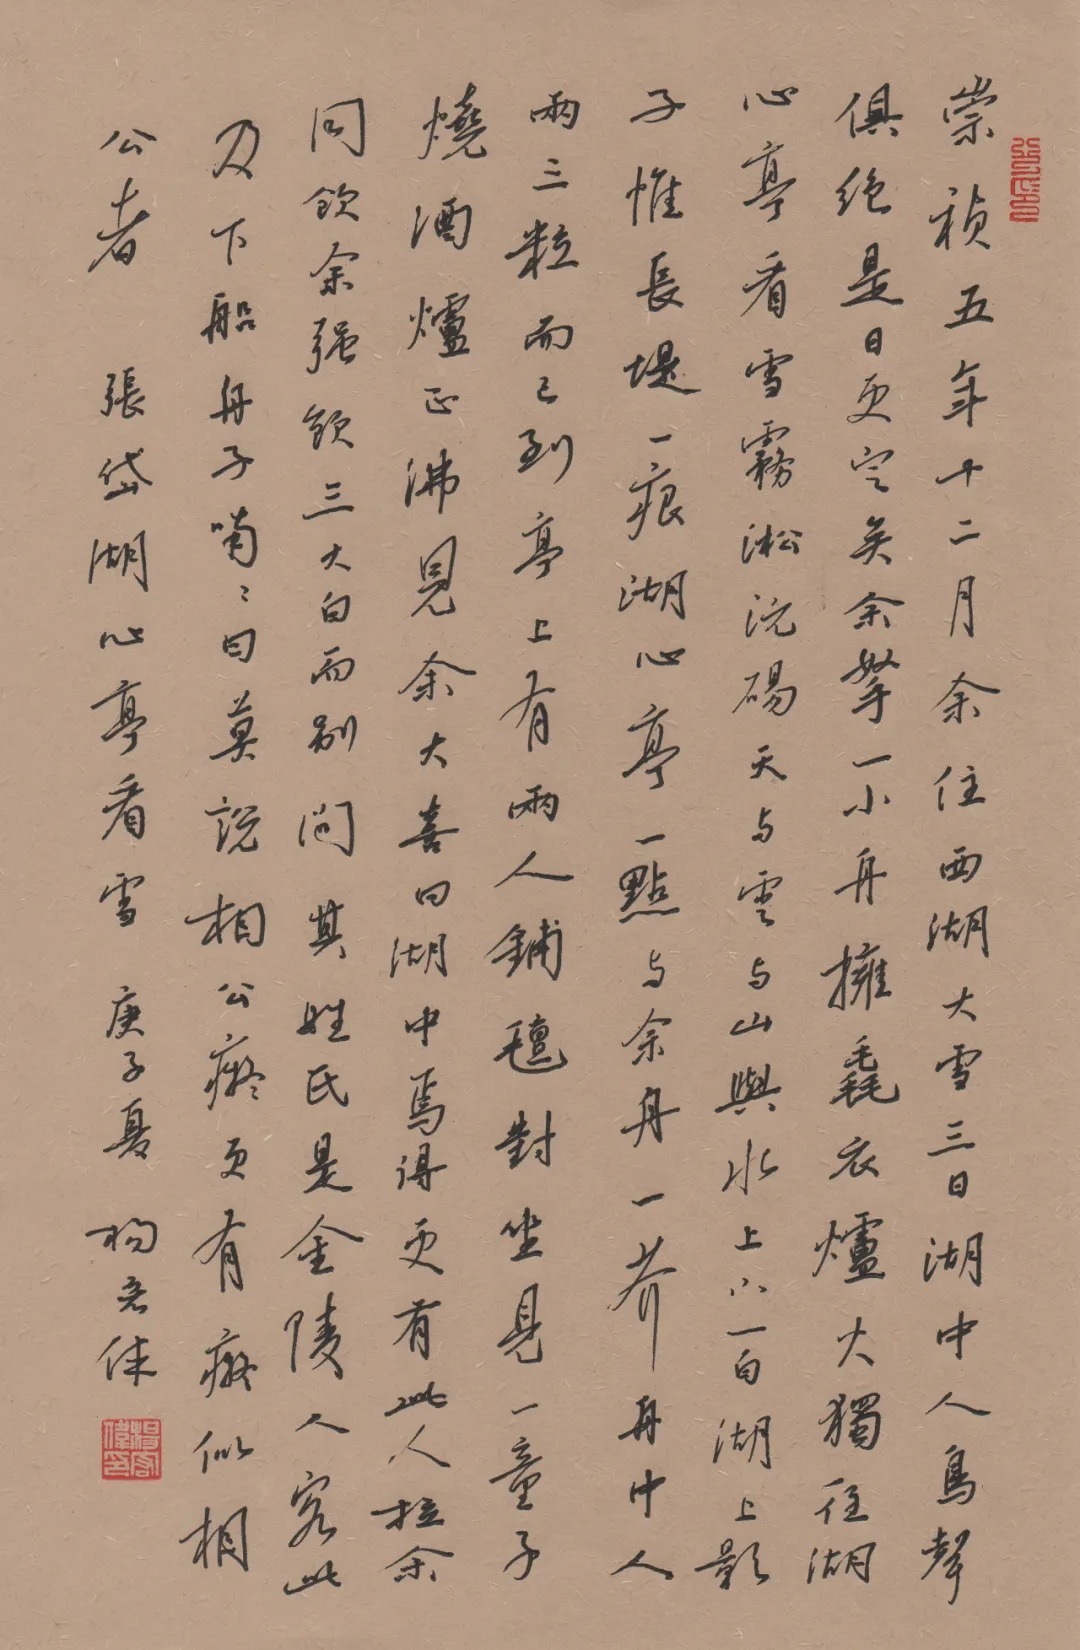 崇祯五年十二月余住西湖大雪三日湖中人鳥聲
俱绝是日更定矣余拏一小舟擁毳衣爐火獨往湖
心亭看雪霧淞沆碭天与雲与山與水上下一白湖上影
子惟長堤一痕湖心亭一點与余舟一芥舟中人
兩三粒而已到亭上有兩人鋪氈對坐見一童子
燒酒爐正沸見余大喜曰湖中焉得更有此人拉余
同飲余强飲三大白而别問其姓氏是金陵人客此
及下船舟子喃〻曰莫説相公癡更有癡似相
公者 張岱湖心亭看雪 庚子夏 杨